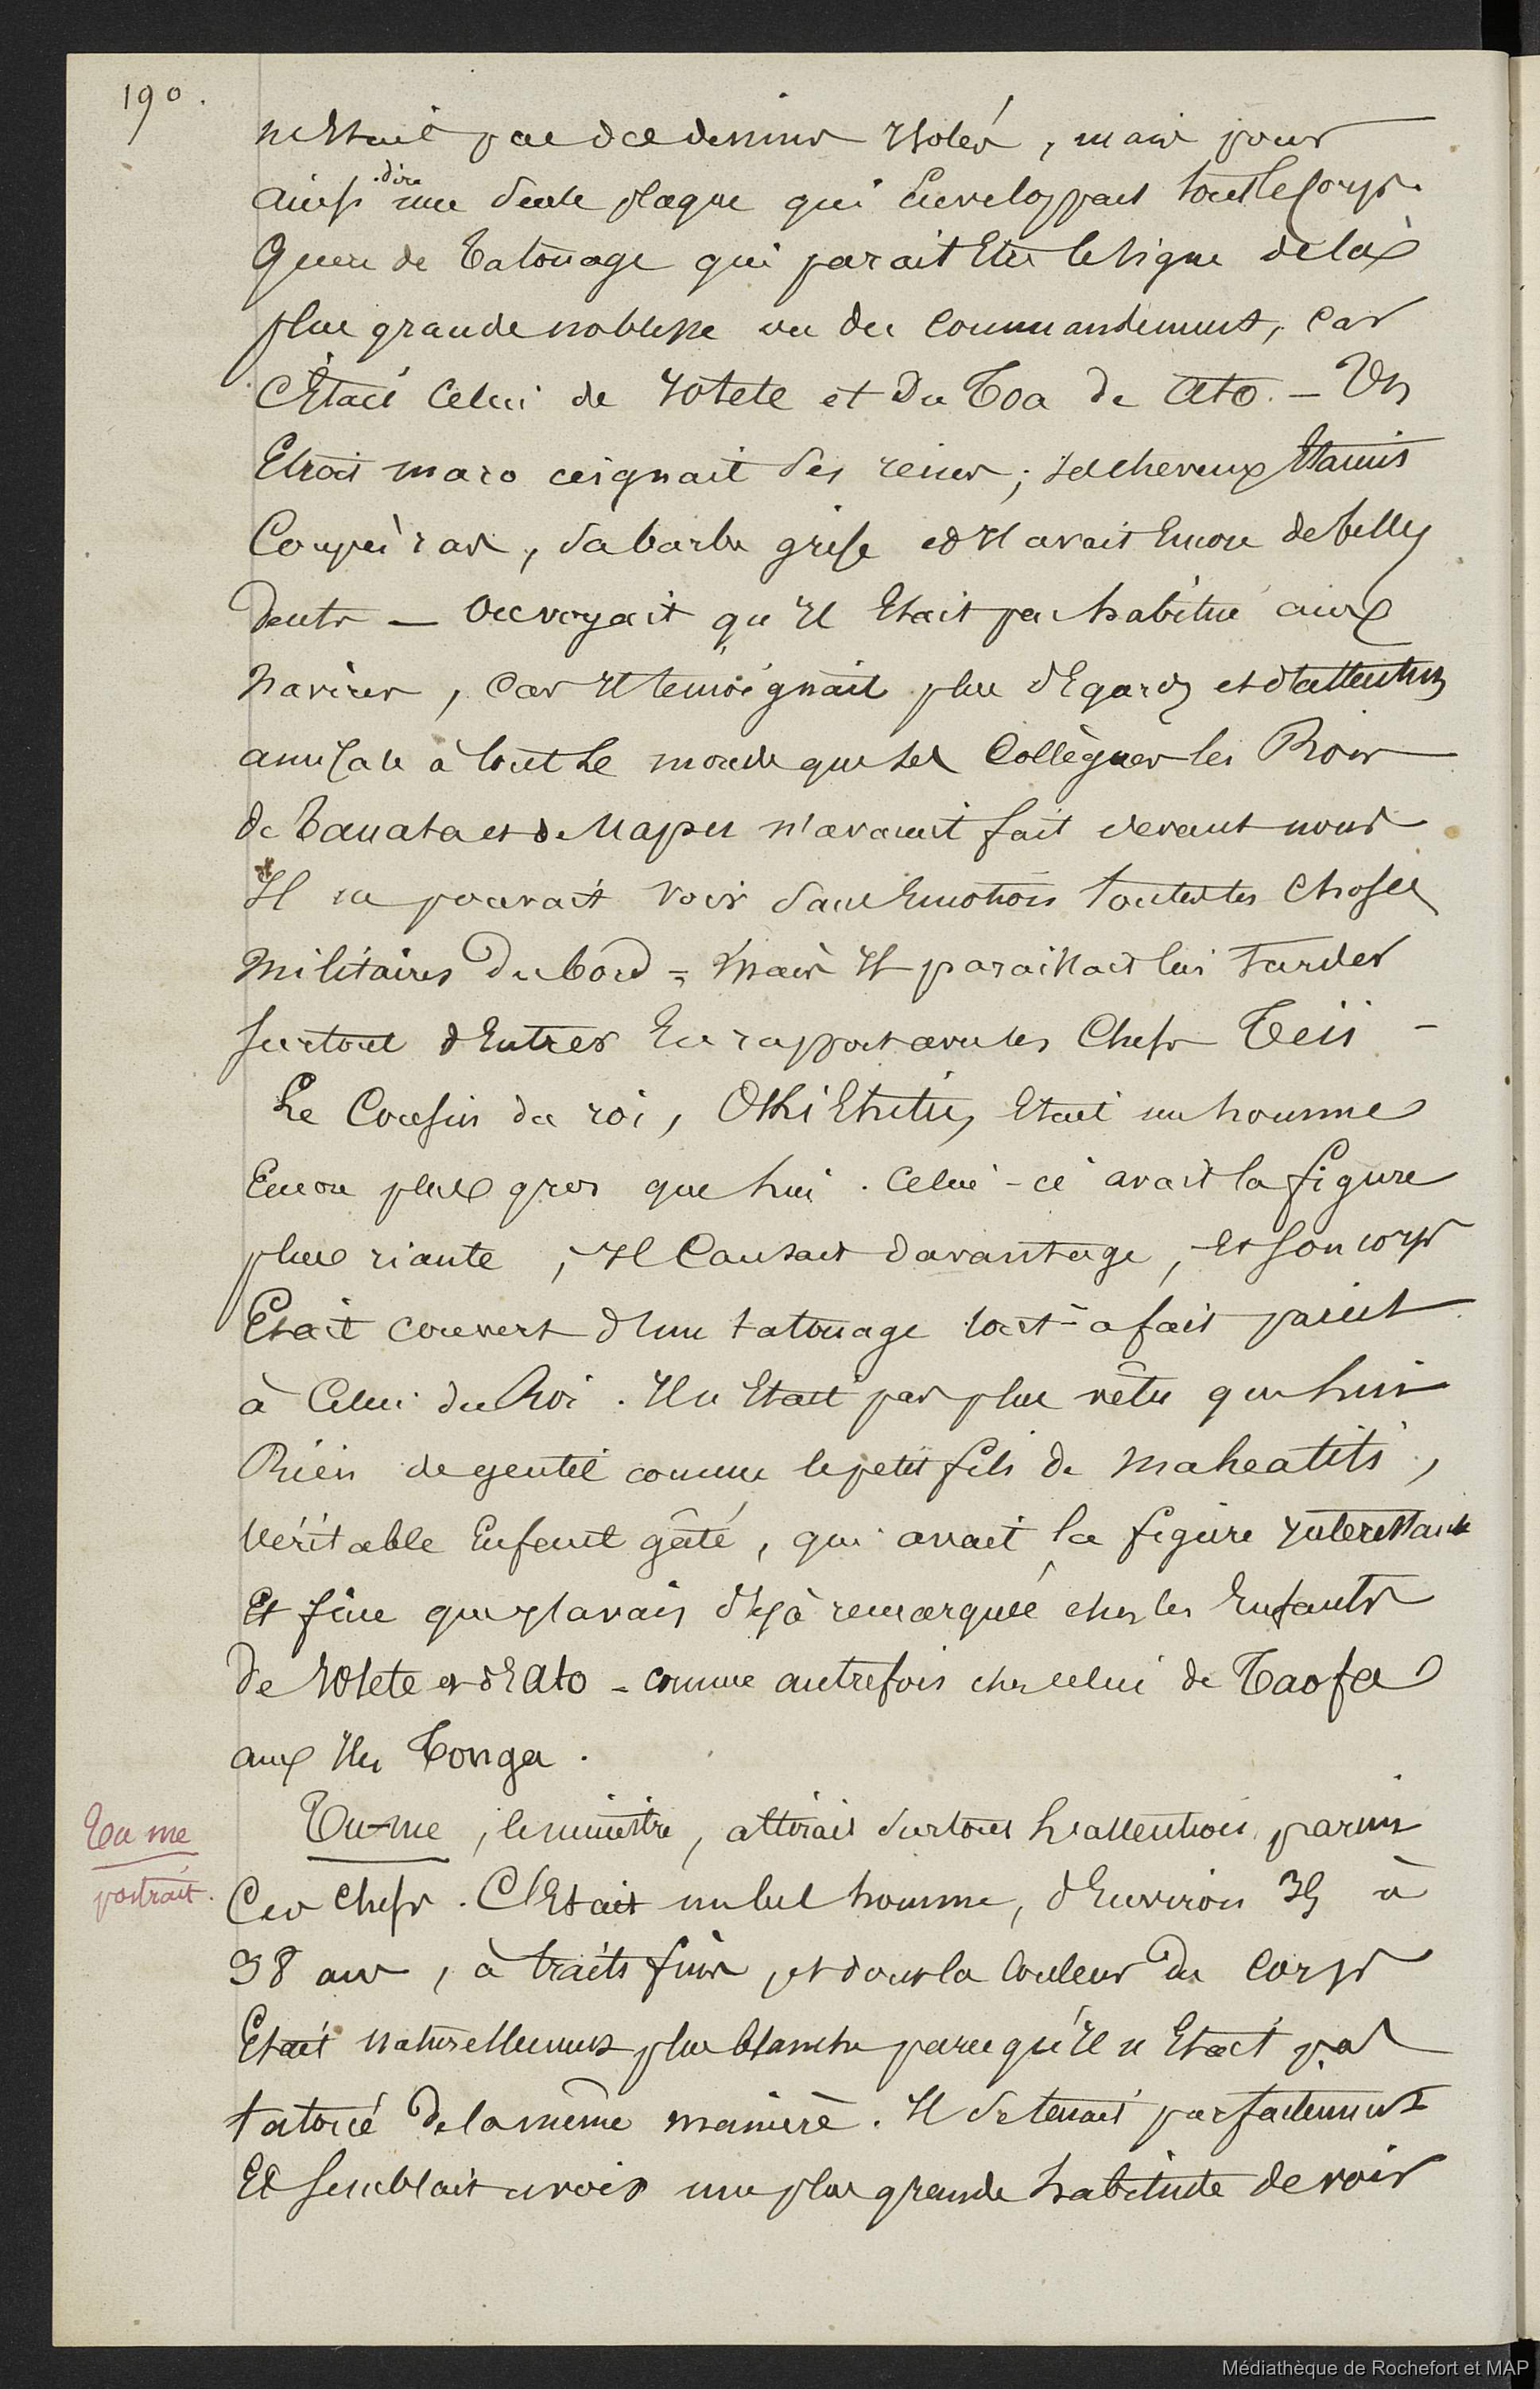 190.
n'était pas des dessins isolés, mais pour
ainsi dire une seule plaque qui enveloppait tout le corps.
Genre de tatouage qui parait être le signe de la
plus grande noblesse ou du commandement, car
c'était celui de Yotete et du Toa de Ato. - Un
étroit maro ceignait ses reins; ses cheveux étaient
coupés ras, sa barbe grise et il avait encore de belles
dents — On voyait qu'il était peu habitué aux
navires, car il témoignait plus d'égards et d'attention
amicale à tout le monde que ses collègues les Rois
de Tauata et de Napu n'avaient fait devant nous
Il ne pouvait voir sans émotion toutes les choses
militaires du bord = mais il paraissait lui tarder
surtout d'entrer en rapport avec les chefs Teii -
Le cousin du roi, Oki était un homme
encore plus gros que lui. Celui-ci avait la figure
plus riante, il causait davantage, et son corps
était couvert d'un tatouage tout-à fait pareil
à celui du Roi. Il n'était pas plus vêtu que lui
Rien de gentil comme le petit fils de Maheatiti,
véritable enfant gâté, qui avait la figure intéressante
et fine que j'avais déjà remarquée chez les enfants
de Yotete et d'Eato - comme autrefois chez celui de Taofa
aux Iles Tonga.
Tu me
portrait.
Tu-me, le ministre, attirait surtout l'attention, parmi
ces chefs. C'était un bel homme, d'environ 35 à
38 ans, à traits fins, et dont la couleur du corps
était naturellement plus blanche parcequ'il n'était pas
tatoué de la même manière. Il se tenait parfaitement
et semblait avoir une plus grande habitude de voir
Médiathèque de Rochefort et MAP